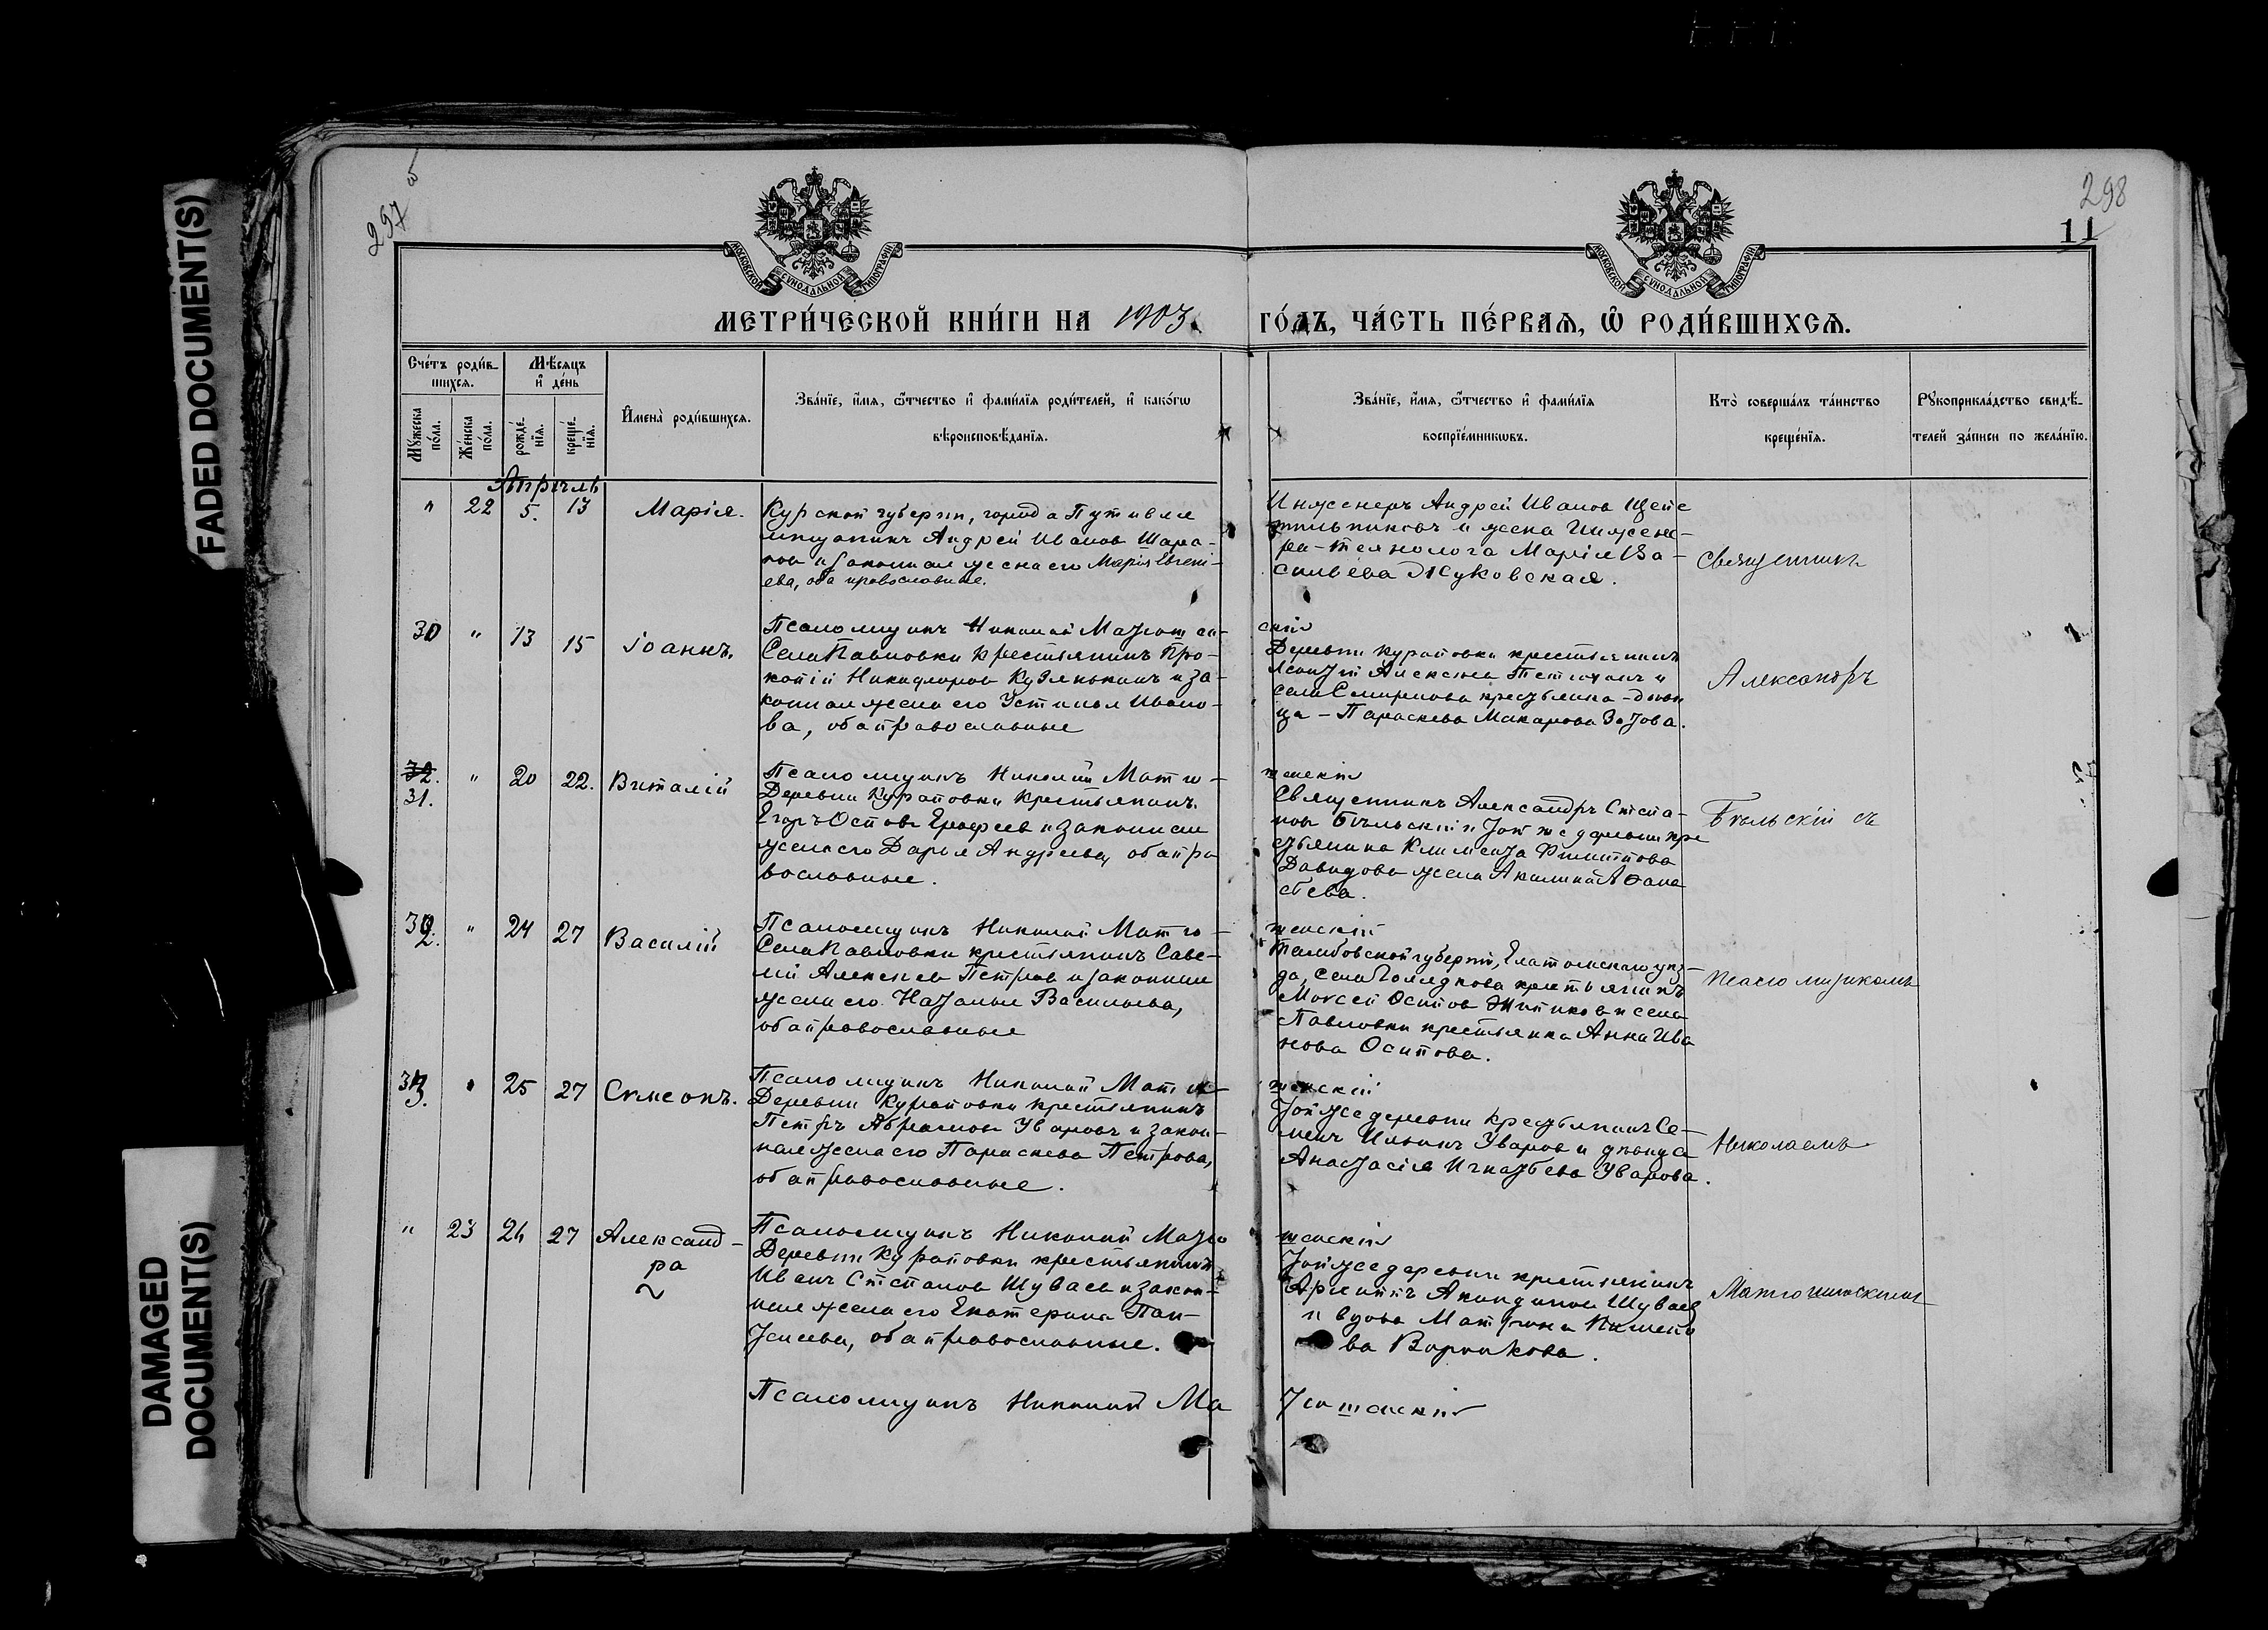 FADED DOCUMENT(S)
DAMAGED
DOCUMENT(S)
297
298
11
МОСКОВСКОЙ СѴНОДАЛЬНОЙ ТИПОГРАФІИ
МОСКОВСКОЙ СѴНОДАЛЬНОЙ ТИПОГРАФІИ
МЕТРИ́ЧЕСКОЙ КНИ́ГИ НА 1903.
ГО́ДЪ, ЧА́СТЬ ПЕ́РВАѦ, Ѡ҆ РОДИ́ВШИХСѦ.
Сче́тъ роди́в-
шихсѧ.
Мꙋ́жеска
по́ла.
Же́нска
по́ла.
Мѣ́сѧцъ
и҆ де́нь
рожде́-
нїѧ.
креще́-
нїѧ.
И҆мена̀ роди́вшихсѧ.
Зва́нїе, и҆́мѧ, ѻ҆́тчество и҆ фами́лїѧ роди́телей, и҆ како́гѡ
вѣроисповѣ́данїѧ.
Зва́нїе, и҆́мѧ, ѻ҆́тчество и҆ фами́лїѧ
воспрїе́мникѡвъ.
Кто̀ соверша́лъ та́инство
креще́нїѧ.
Рꙋкоприкла́дство свидѣ́-
телей за́писи по жела́нїю.
Апрѣль
" 22 5. 13 Марія.
Курской губерніи, города Путивля
мѣщанинъ Андрей Ивановъ Шара-
повъ и законная жена его Марія Евгені-
ева, оба православные.
Инженеръ Андрей Ивановъ
и жена Инжене-
ра-технолога Марія Ва-
сильева Жуковская.
Священникъ
Псаломщикъ Николай Матюшен-
скій
30 " 13 15 Іоаннъ.
Села Павловки крестьянинъ Про-
копій Никифоровъ Кузенькинъ и за-
конная жена его Устинья Ивано-
ва, оба православные
Деревни Куратовки крестьянинъ
Алексѣевъ и
села Смирнова крестьянка-дѣви
ца-Параскева Макарова Зотова.
Александръ
Псаломщикъ Николай Матю-
шенскій
32. 31. " 20 22. Виталій
Деревни Куратовки крестьянинъ
Егоръ Осиповъ Ерофеевъ и законная
жена его Дарья Андреева, оба пра
вославные.
Священникъ Александръ Степа-
новъ Бѣльскій и той же деревни кре
стьянина Климента Филиппова
Давидова жена Акилина Аѳана
сьева.
Бѣльскій съ
Псаломщикъ Николай Матю-
шенскій
32. " 24 27 Василій
Села Павловки крестьянинъ Саве-
лій Алексѣевъ Петровъ и законная
жена его Наталья Васильева,
оба православные
Тамбовской губерніи, Елатомскаго уѣз-
да, села крестьянинъ
Моисей Осиповъ и села
Павловки крестьянка Анна Ива
нова Осипова.
псаломщикомъ
Псаломщикъ Николай Матю-
шенскій
33. " 25 27 Симеонъ.
Деревни Куратовки крестьянинъ
Петръ Абрамовъ Уваровъ и закон-
ная жена его Параскева Петрова,
оба православные.
Той же деревни крестьянинъ Се-
менъ Ильинъ Уваровъ и дѣвица
Анастасія Игнатьева Уварова.
Николаемъ
Псаломщикъ Николай Матю
шенскій
" 23 26 27 Александ-
ра
Деревни Куратовки крестьянинъ
Иванъ Степановъ Шуваевъ и закон-
ная жена его Екатерина Пан-
телеева, оба православные.
Той же деревни крестьянинъ
Архиппъ Акиндиновъ Шуваевъ
и вдова Матрона
ва Воронкова.
Матюшенскимъ
Псаломщикъ Николай Ма
тюшенскій